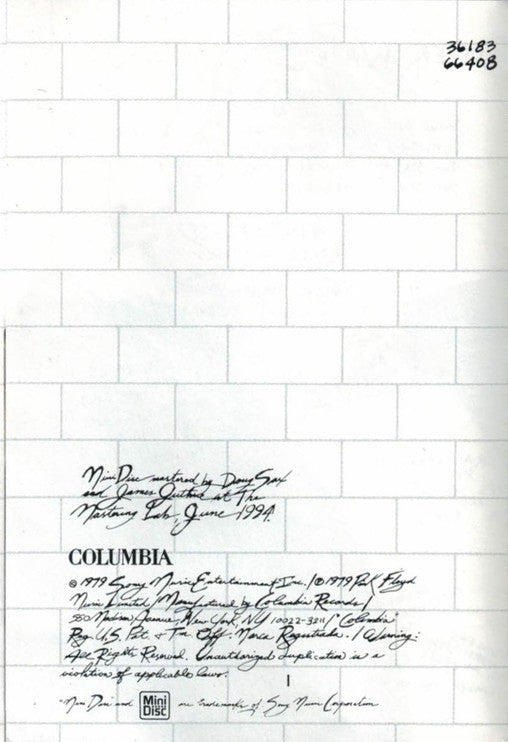 36183
66408
MiniDisc mastered by Doug Sax
and James Guthrie at The
Mastering Lab, June 1994.
COLUMBIA
© 1979 Sony Music Entertainment Inc. / ℗ 1979 Pink Floyd
Music Limited / Manufactured by Columbia Records /
550 Madison Avenue, New York, NY 10022-3211 / "Columbia"
Reg. U.S. Pat. & Tm. Off. Marca Registrada. / Warning:
All Rights Reserved. Unauthorized duplication is a
violation of applicable laws.
"Mini Disc" and Mini Disc are trademarks of Sony Music Corporation